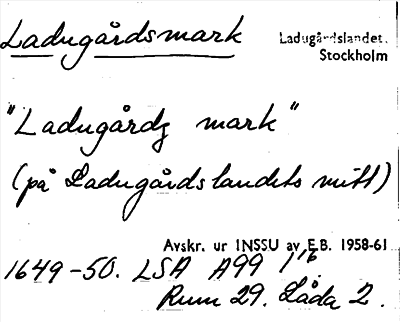 Ladugårdsmark
Ladugårdslandet.
Stockholm
"Ladugårdz mark"
(på Ladugårdslandets mitt)
Avskr. ur INSSU av E.B. 1958-61
1649-50. LSA A99 1 16
Rum 29. Låda 2.